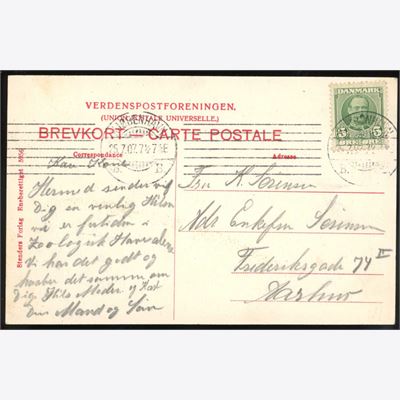 VERDENSPOSTFORENINGEN.
(UNION POSTALE UNIVERSELLE.)
BREVKORT — CARTE POSTALE
Correspondance
Adresse
DANMARK
5 5
ØRE ØRE
KJØBENHAVN
25.7.07.
B. B.
Stenders Forlag Eneberettiget
Kære
Hermed sender vi
Dig en venlig Hilsen
vi er for tiden i
Zoologisk Have
Vi har det godt og
haaber det samme om
Dig. Hils Moder og
Din Mand og
Fru
Adr. Enkefru
Frederiksgade 74 II
Aarhus